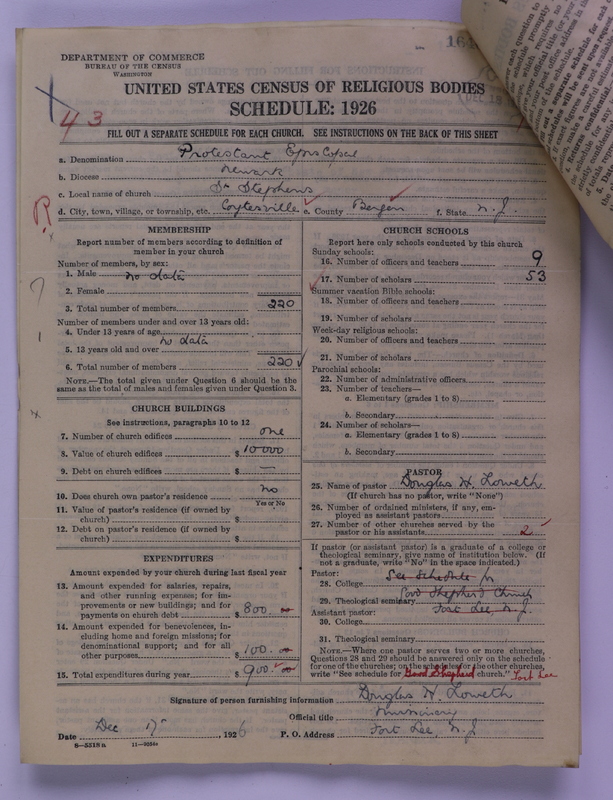 164
DEPARTMENT OF COMMERCE
BUREAU OF THE CENSUS
WASHINGTON
UNITED STATES CENSUS OF RELIGIOUS BODIES
SCHEDULE: 1926
43
FILL OUT A SEPARATE SCHEDULE FOR EACH CHURCH. SEE INSTRUCTIONS ON THE BACK OF THIS SHEET
a. Denomination Protestant Episcopal
b. Diocese Newark
c. Local name of church St Stephens
d. City, town, village, or township, etc. Coytesville e. County Bergen f. State N. J.
R
MEMBERSHIP
Report number of members according to definition of member in your church
Number of members, by sex:
1. Male no data
2. Female
3. Total number of members 220
Number of members under and over 13 years old:
4. Under 13 years of age
no data
5. 13 years old and over
6. Total number of members 220
NOTE.—The total given under Question 6 should be the
same as the total of males and females given under Question 3.
CHURCH BUILDINGS
See instructions, paragraphs 10 to 12
7. Number of church edifices one
8. Value of church edifices $10000
9. Debt on church edifices $ —
10. Does church own pastor's residence no
Yes or No
11. Value of pastor's residence (if owned by
church) $
12. Debt on pastor's residence (if owned by
church) $
EXPENDITURES
Amount expended by your church during last fiscal year
13. Amount expended for salaries, repairs,
and other running expenses; for im-
provements or new buildings; and for
payments on church debt $ 800.
14. Amount expended for benevolences, in-
cluding home and foreign missions; for
denominational support; and for all
other purposes $ 100.
15. Total expenditures during year $ 900.
CHURCH SCHOOLS
Report here only schools conducted by this church
Sunday schools:
16. Number of officers and teachers 9
17. Number of scholars 53
Summer vacation Bible schools:
18. Number of officers and teachers
19. Number of scholars
Week-day religious schools:
20. Number of officers and teachers
21. Number of scholars
Parochial schools:
22. Number of administrative officers
23. Number of teachers—
a. Elementary (grades 1 to 8)
b. Secondary
24. Number of scholars—
a. Elementary (grades 1 to 8)
b. Secondary
PASTOR
25. Name of pastor Douglas H. Loweth
(If church has no pastor, write "None")
26. Number of ordained ministers, if any, em-
ployed as assistant pastors
27. Number of other churches served by the
pastor or his assistants 2
If pastor (or assistant pastor) is a graduate of a college or
theological seminary, give name of institution below. (If
not a graduate, write "No" in the space indicated.)
Pastor:
28. College See Schedule for
29. Theological seminary Good Shepherd Church
Assistant pastor: Fort Lee, N. J.
30. College
31. Theological seminary
NOTE.—Where one pastor serves two or more churches,
Questions 28 and 29 should be answered only on the schedule
for one of the churches; on the schedules for the other churches,
write "See schedule for Good Shepherd church." Fort Lee
Signature of person furnishing information Douglas H. Loweth
Official title Missionary
Date Dec 17 1926 P. O. Address Fort Lee, N. J
8—5518 a 11—9056a